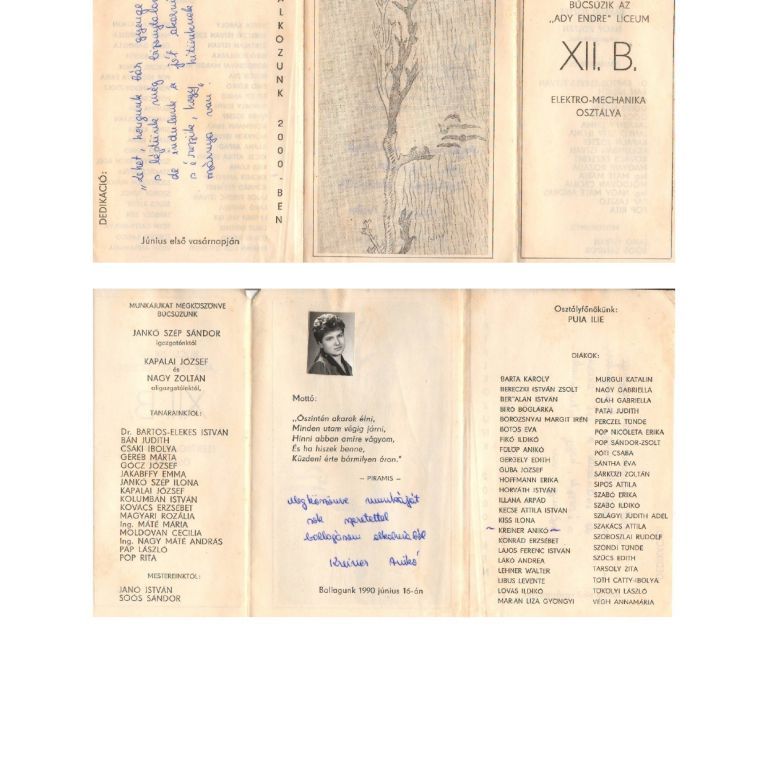 DEDIKÁCIÓ:
a lépéünk még bizonytalan,
de indulunk s jól akarunk
s érezzük, hogy hitünknek
mássunya van."
Június első vasárnapján
ALKOZUNK 2000-BEN
BÚCSÚZIK AZ
„ADY ENDRE" LÍCEUM
XII. B.
ELEKTRO-MECHANIKA
OSZTÁLYA
MUNKÁJUKAT MEGKÖSZÖNVE
BÚCSÚZUNK
JANKÓ SZÉP SÁNDOR
igazgatónktól
KAPALAI JÓZSEF
és
NAGY ZOLTÁN
aligazgatóinktól,
TANÁRAINKTÓL:
Dr. BARTOS-ELEKES ISTVÁN
BÁN JUDITH
CSÁKI IBOLYA
GERÉB MÁRTA
GÖCZ JÓZSEF
JAKABFFY EMMA
JANKÓ SZÉP ILONA
KAPALAI JÓZSEF
KOLUMBÁN ISTVÁN
KOVÁCS ERZSÉBET
MAGYARI ROZÁLIA
Ing. MÁTÉ MÁRIA
MOLDOVÁN CECILIA
Ing. NAGY MÁTÉ ANDRÁS
PAP LÁSZLÓ
POP RITA
MESTEREINKTŐL:
JANÓ ISTVÁN
SOÓS SÁNDOR
Mottó:
„Őszintén akarok élni,
Minden utam végig járni,
Hinni abban amire vágyom,
És ha hiszek benne,
Küzdeni érte bármilyen áron."
– PIRAMIS –
Megköszönve munkáját
sok szeretettel
ballagásom alkalmából
Kreiner Anikó
Ballagunk 1990 június 16-án
Osztályfőnökünk:
PUIA ILIE
DIÁKOK:
BARTA KÁROLY
BERECZKI ISTVÁN ZSOLT
BERTALAN ISTVÁN
BIRÓ BOGLÁRKA
BOROZSNYAI MARGIT IRÉN
BOTOS ÉVA
FIKÓ ILDIKÓ
FÜLÖP ANIKÓ
GERGELY EDITH
GUBA JÓZSEF
HOFFMANN ERIKA
HORVÁTH ISTVÁN
ILLANA ÁRPÁD
KECSE ATTILA ISTVÁN
KISS ILONA
~ KREINER ANIKÓ ~
KONRÁD ERZSÉBET
LAJOS FERENC ISTVÁN
LAKÓ ANDREA
LEHNER WALTER
LIBUS LEVENTE
LOVAS ILDIKÓ
MARIAN LIZA GYÖNGYI
MURGUI KATALIN
NAGY GABRIELLA
OLÁH GABRIELLA
PATAI JUDITH
PERCZEL TÜNDE
POP NICOLETA ERIKA
POP SÁNDOR-ZSOLT
PÓTI CSABA
SÁNTHA ÉVA
SÁRKÖZI ZOLTÁN
SIPOS ATTILA
SZABÓ ERIKA
SZABÓ ILDIKÓ
SZILÁGYI JUDITH ADÉL
SZAKÁCS ATTILA
SZOBOSZLAI RUDOLF
SZONDI TÜNDE
SZŰCS EDITH
TARSOLY ZITA
TÓTH CATTY-IBOLYA
TÖKÖLYI LÁSZLÓ
VÉGH ANNAMÁRIA